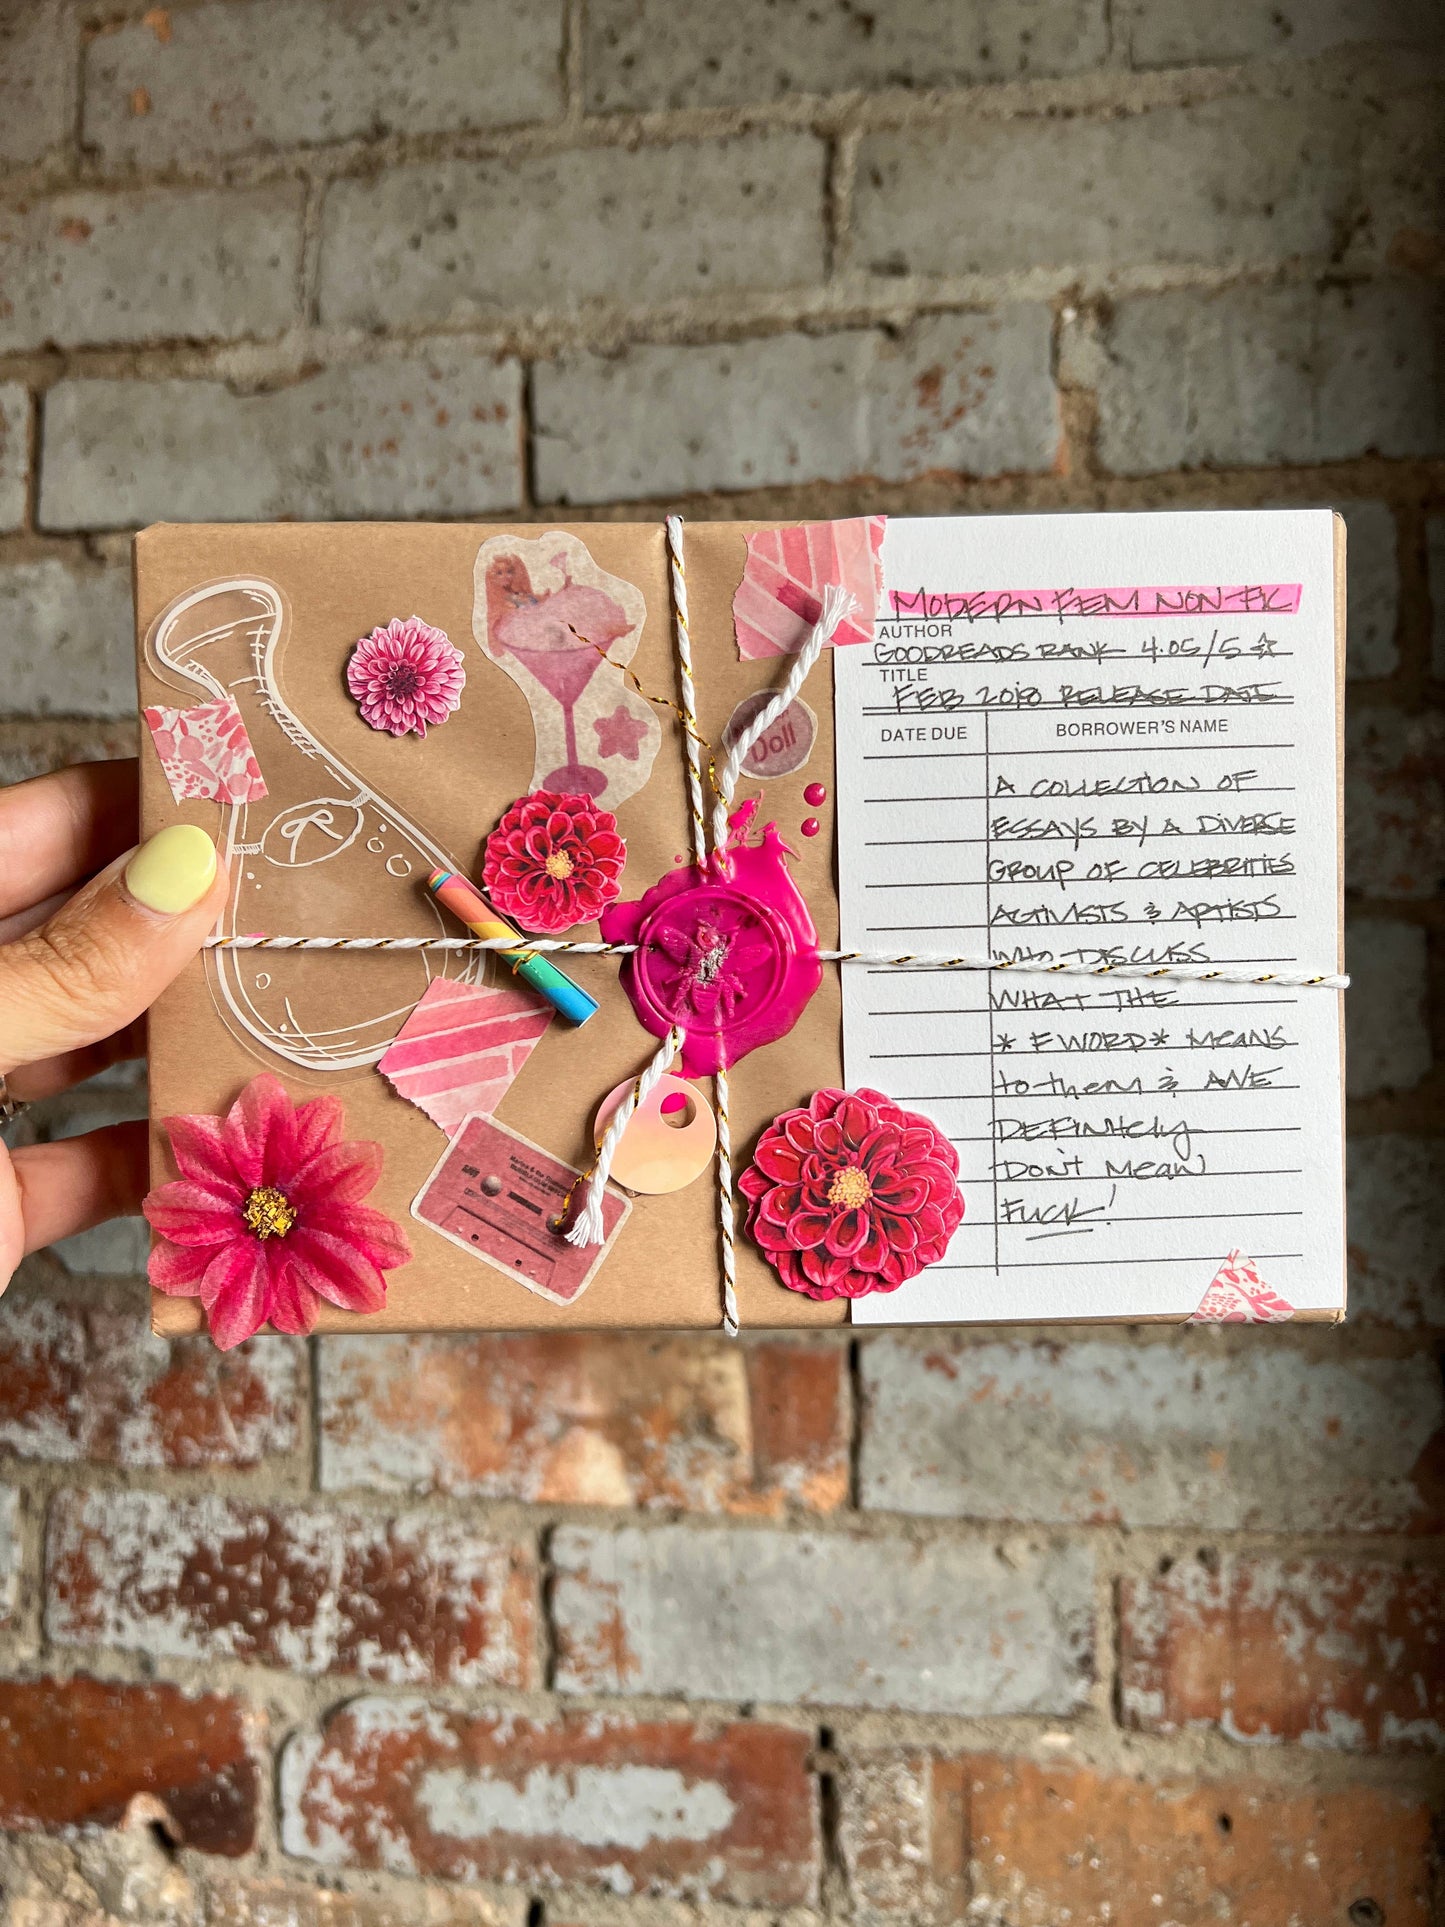 MODERN FEM NON-FIC
AUTHOR
GOODREADS RANK 4.05/5 ☆
TITLE
FEB 2018 RELEASE DATE
DATE DUE
BORROWER'S NAME
A COLLECTION OF
ESSAYS BY A DIVERSE
GROUP OF CELEBRITIES
ACTIVISTS & ARTISTS
WHO DISCUSS
WHAT THE
* F WORD * MEANS
to them & WE
DEFINITELY
DON'T MEAN
FUCK!
Doll